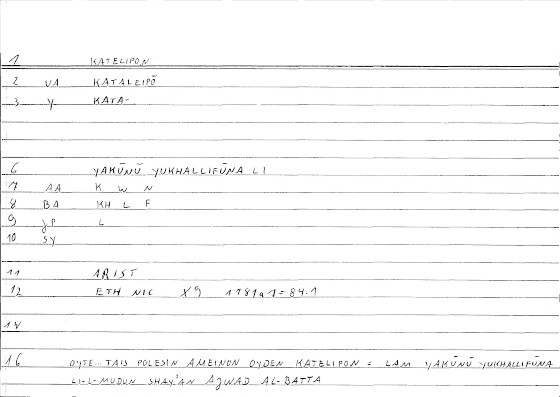 1 KATELIPON
2 VA KATALEIPŌ
3 Y KATA-
6 YAKŪNŪ YUKHALLIFŪNA LI
7 AA K W N
8 BA KH L F
9 JP L
10 SY
11 ARIST
12 ETH NIC X9 1181a1=84.1
14
16 OYTE... TAIS POLESIN AMEINON OYDEN KATELIPON = LAM YAKŪNŪ YUKHALLIFŪNA
LI-L-MUDUN SHAY'AN AJWAD AL-BATTA